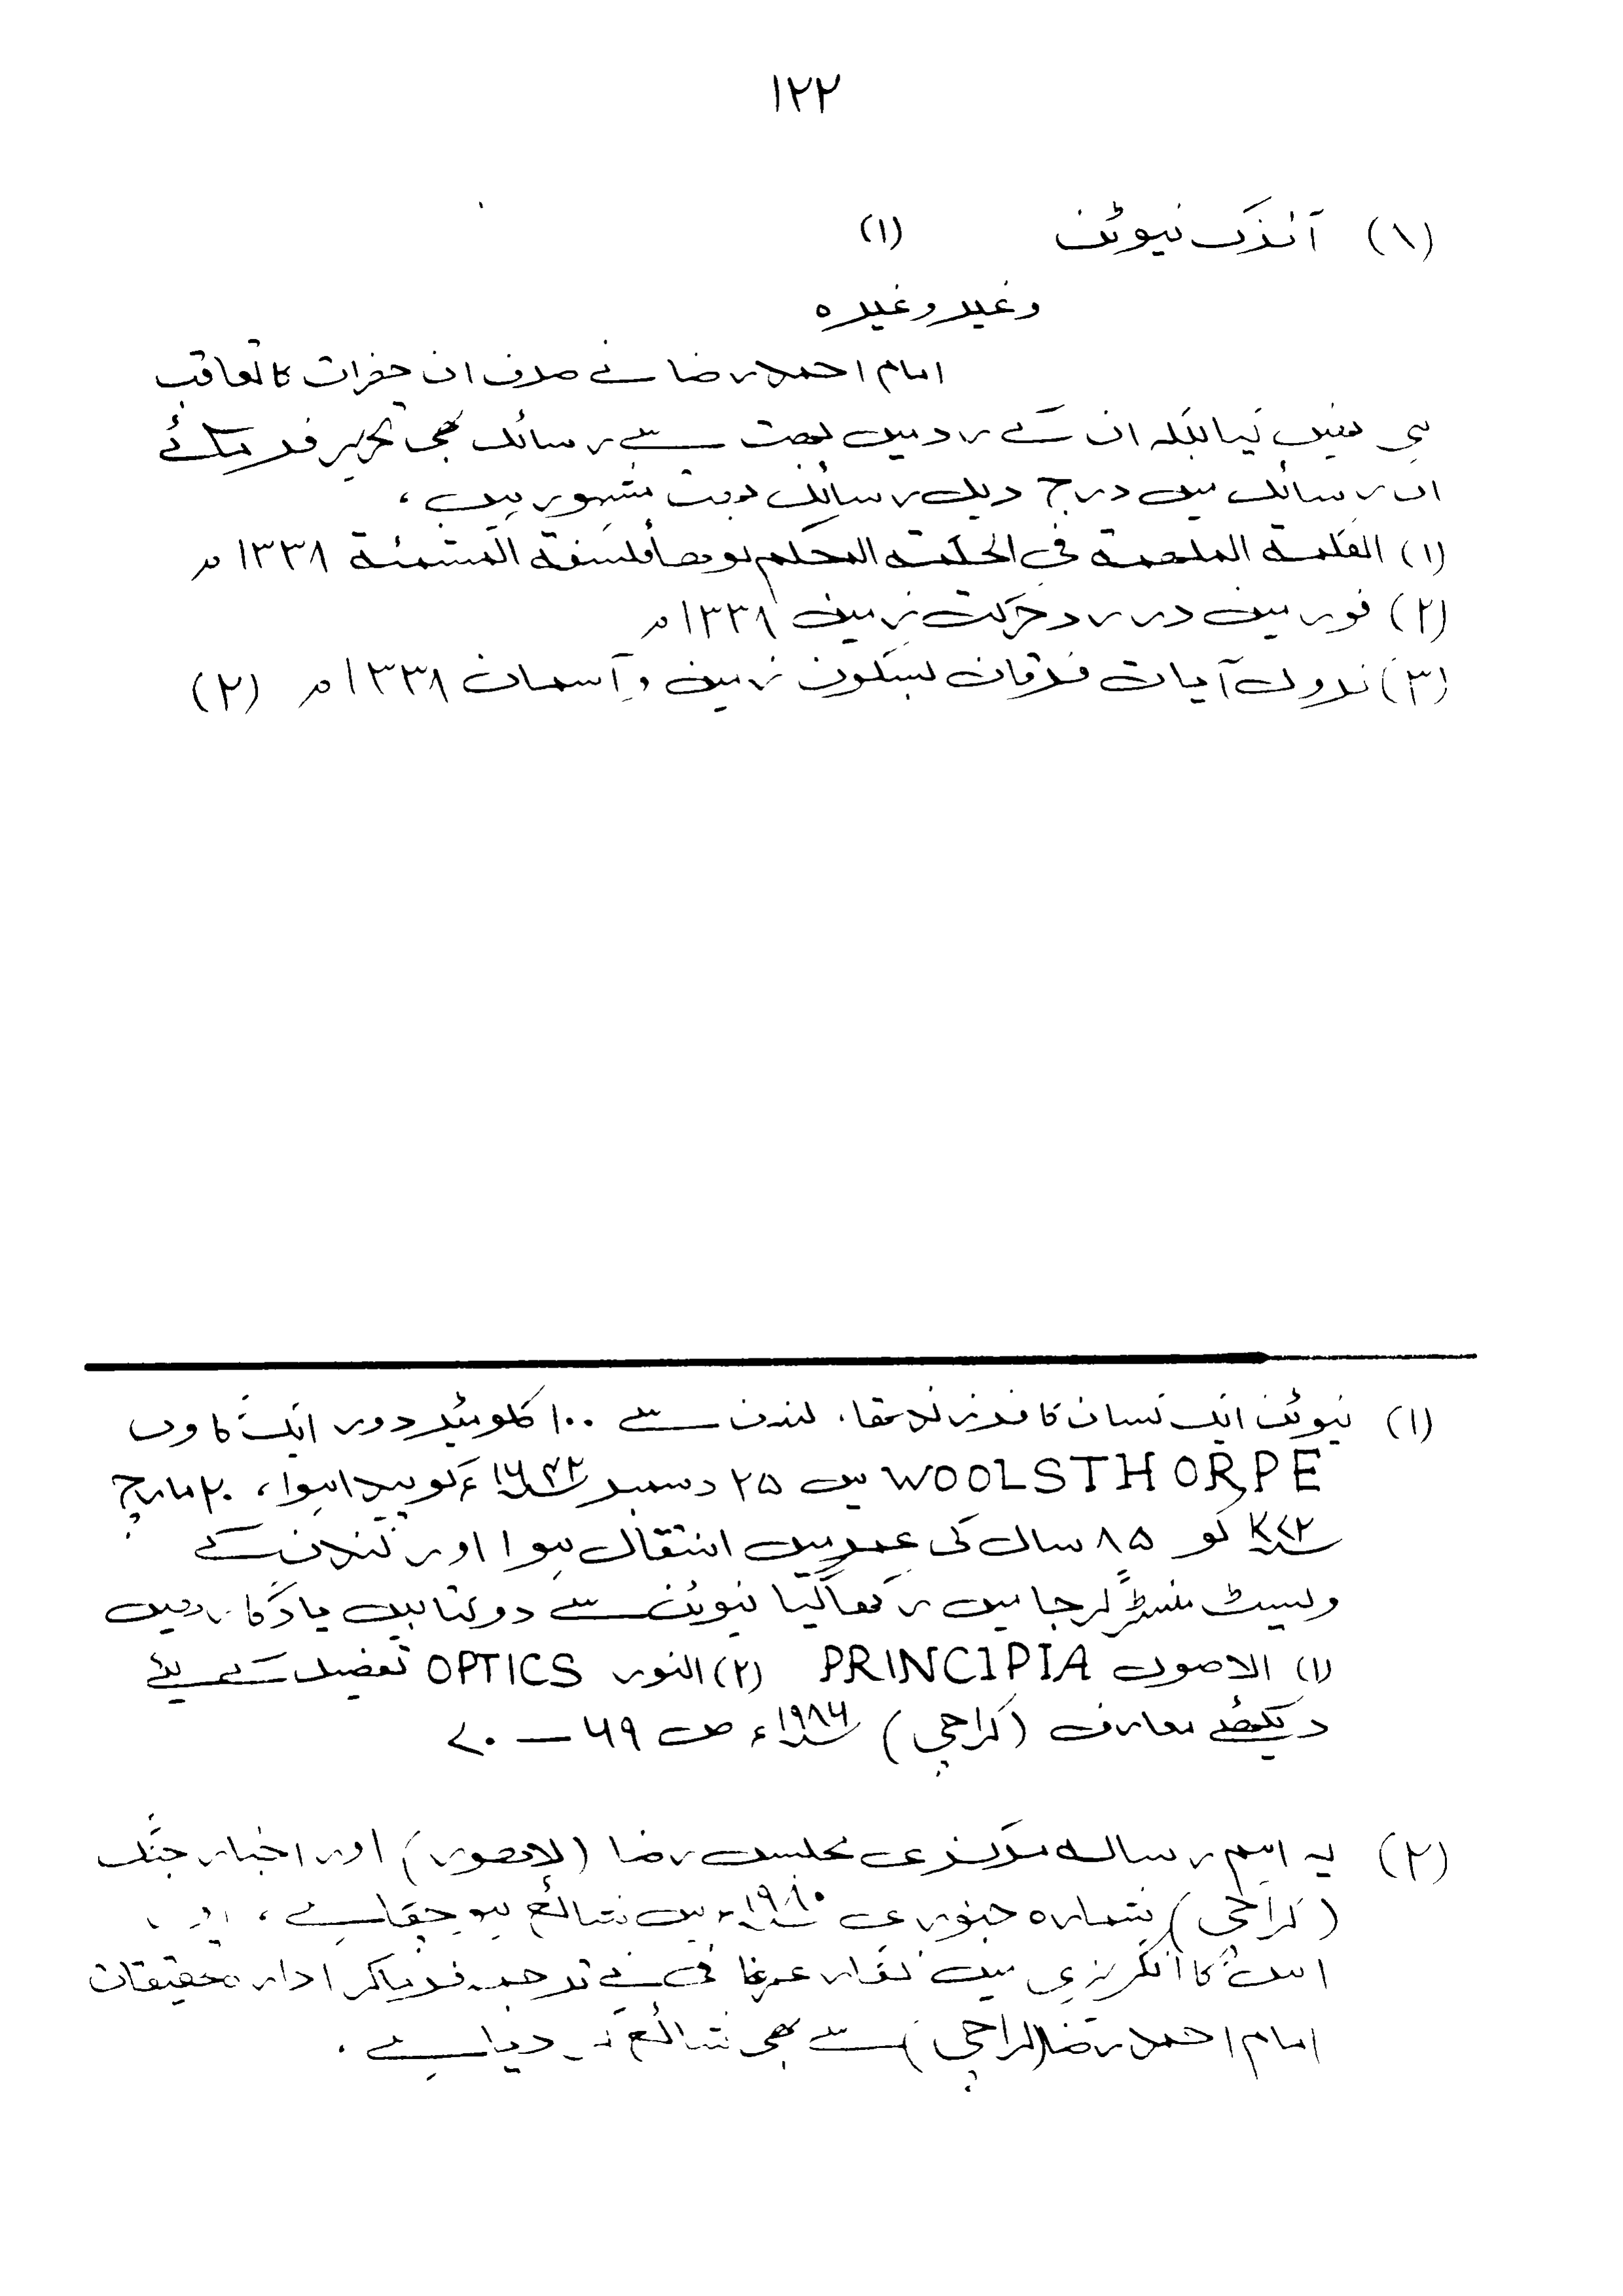 ۱۲۲
(۸) آئزک نیوٹن (۱)
وغیر وغیرہ
امام احمد رضا نے صرف ان حضرات کا تعاقب
ہی نہیں کیا بلکہ ان کے رد میں بہت سے رسائل بھی تحریر فرمائے
ان رسائل میں درج ذیل رسائل بہت مشہور ہیں ،
(۱) الکلمۃ الملہمۃ فی الحکمۃ المحکم لوھا فلسفۃ المشئمۃ ۱۳۳۸ھ
(۲) فوز مبین در رد حرکت زمین ۱۳۳۸ھ
(۳) نزول آیات فرقان بسکون زمین و آسمان ۱۳۳۸ھ (۲)
(۱) نیوٹن ایک کسان کا فرزند تھا۔ لندن سے ۱۰۰ کلومیٹر دور ایک گاوں
WOOLSTHORPE میں ۲۵ دسمبر ۱۶۴۲ء کو پیدا ہوا ، ۲۰ مارچ
۱۷۲۷ کو ۸۵ سال کی عمر میں انتقال ہوا اور لندن کے
ویسٹ منسٹر گرجا میں رکھا گیا نیوٹن سے دو کتابیں یادگار ہیں
(۱) الاصول PRINCIPIA (۲) النور OPTICS تفصیل کے لیئے
دیکھئے معارف (کراچی) ۱۹۸۶ء ص ۶۹ — ۷۰
(۲) یہ اہم رسالہ مرکزی مجلس رضا (لاہور) اور اخبار جنگ
(کراچی) شمارہ جنوری ۱۹۸۰ء میں شائع ہو چکا ہے ،
اس کا انگریزی میں نگار عرفانی نے ترجمہ فرماکر ادارہ تحقیقات
امام احمد رضا (کراچی) سے بھی شائع کر دیا ہے ۔